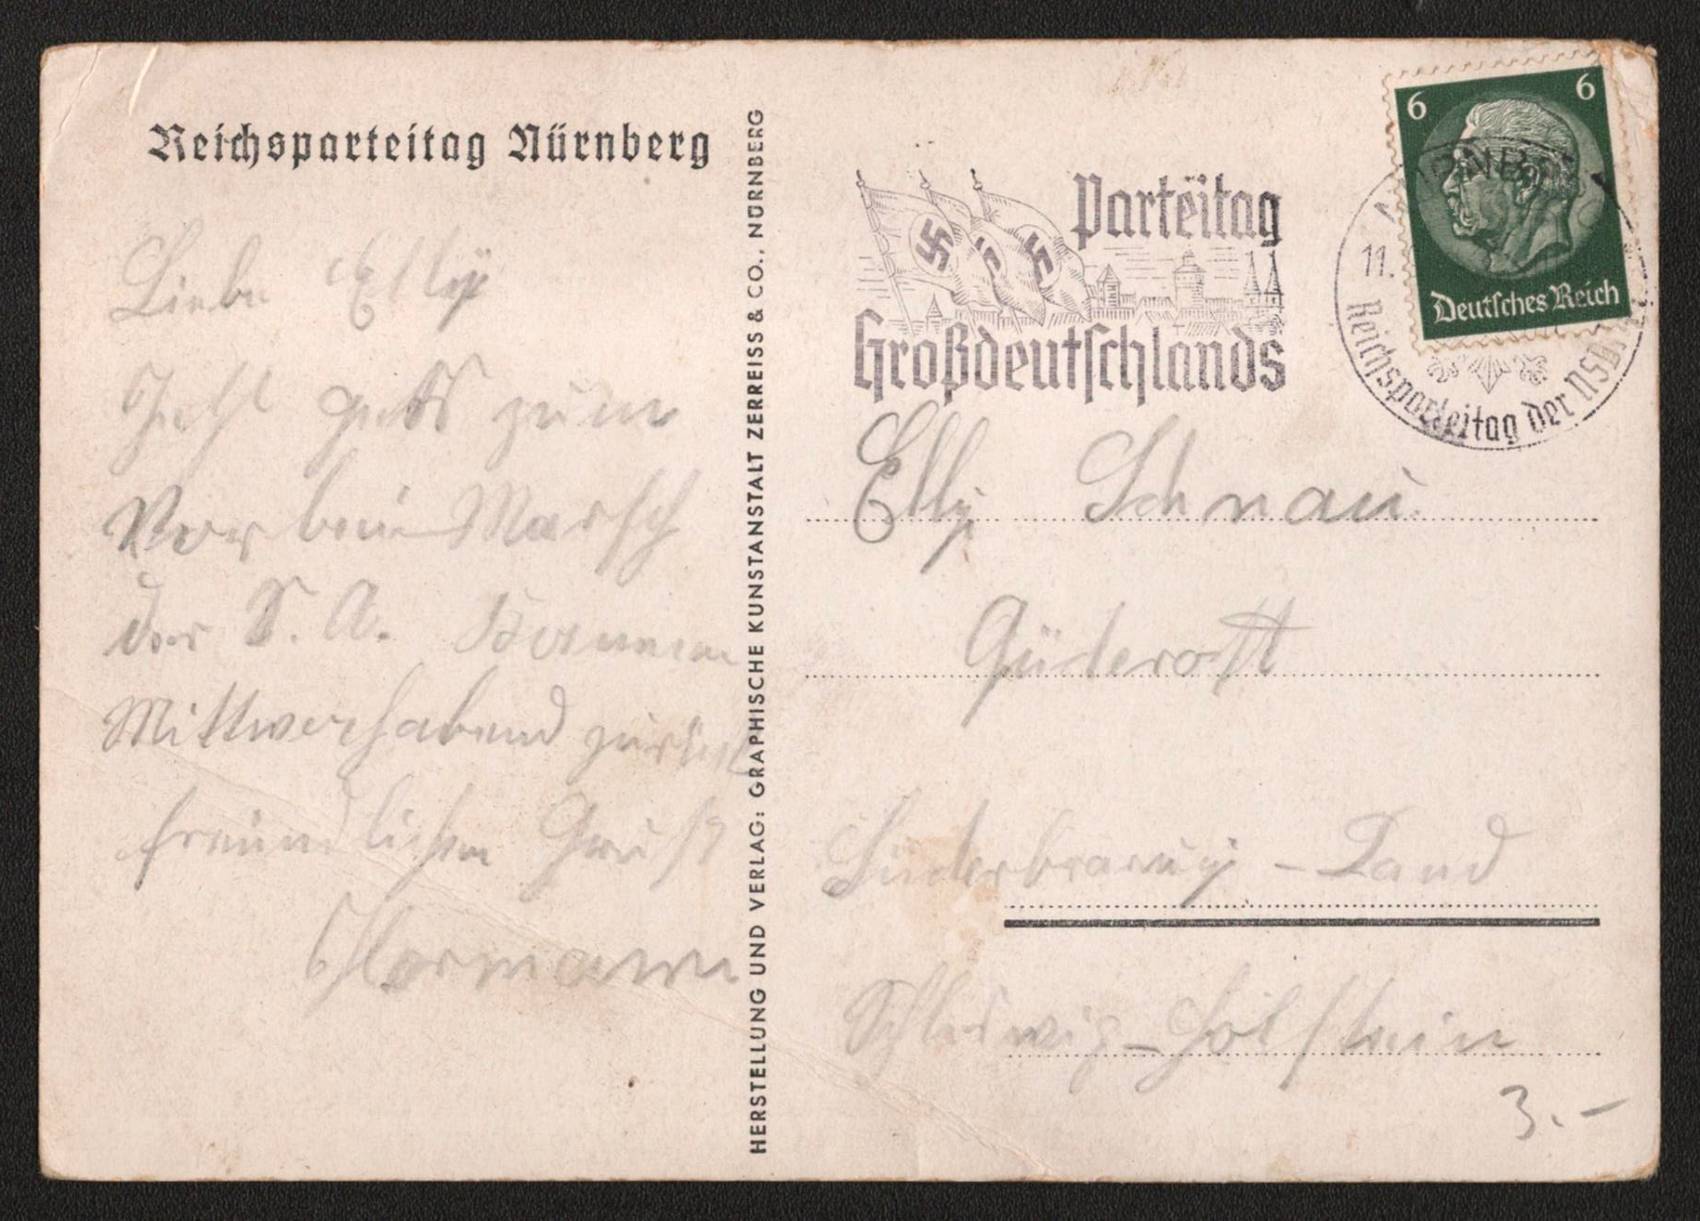 Reichsparteitag Nürnberg
Liebe Elly
Jetzt gehts zum
Vorbeimarsch
der S. A. Kommen
Mittwochabend zurück
freundlichen Gruß
Hermann
HERSTELLUNG UND VERLAG: GRAPHISCHE KUNSTANSTALT ZERREISS & CO., NÜRNBERG
Parteitag
Großdeutschlands
6 6
Deutsches Reich
11.
Reichsparteitag der NSDAP
Elly Schnau
Güderott
Süderbrarup - Land
Schleswig-Holstein
3.-